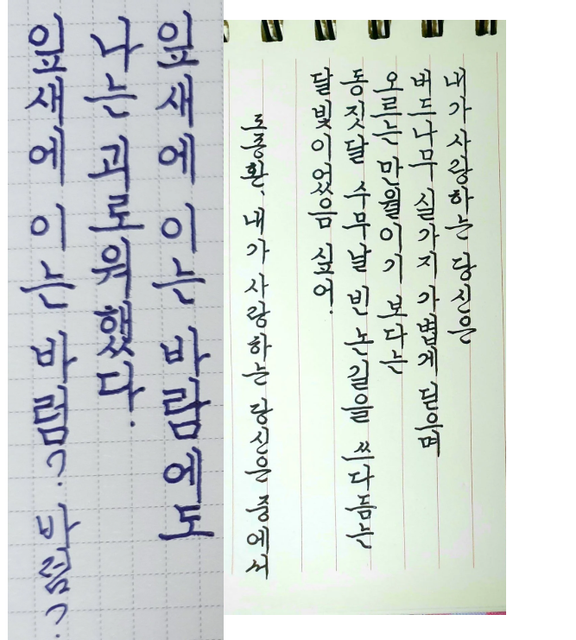 잎새에 이는 바람에도
나는 괴로워했다.
잎새에 이는 바렴? 바렴?
내가 사랑하는 당신은
버드나무 실가지 가볍게 딛으며
오르는 만월이기 보다는
동짓달 수무날 빈 논길을 쓰다듬는
달빛이었음 싶어.
도종환, 내가 사랑하는 당신은 중에서